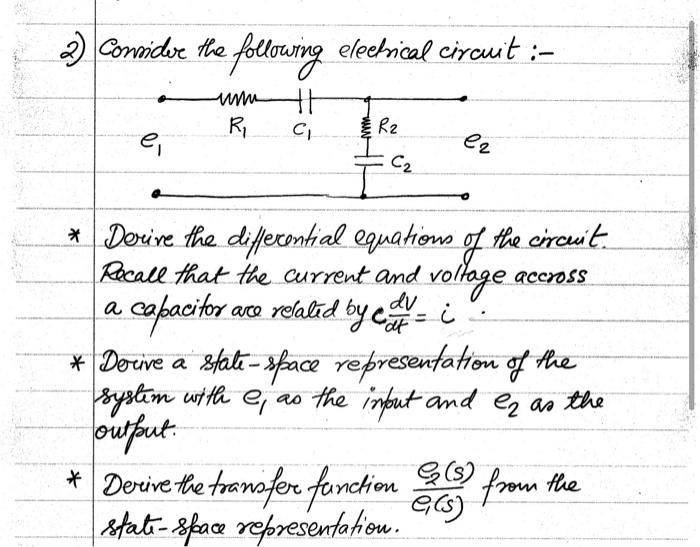 2) Consider the following electrical circuit :-
R1 C1 R2
e1 e2
C2
* Derive the differential equations of the circuit.
Recall that the current and voltage accross
a capacitor are related by C dv/dt = i .
* Derive a state-space representation of the
system with e1 as the input and e2 as the
output.
* Derive the transfer function e2(s)/e1(s) from the
state-space representation.